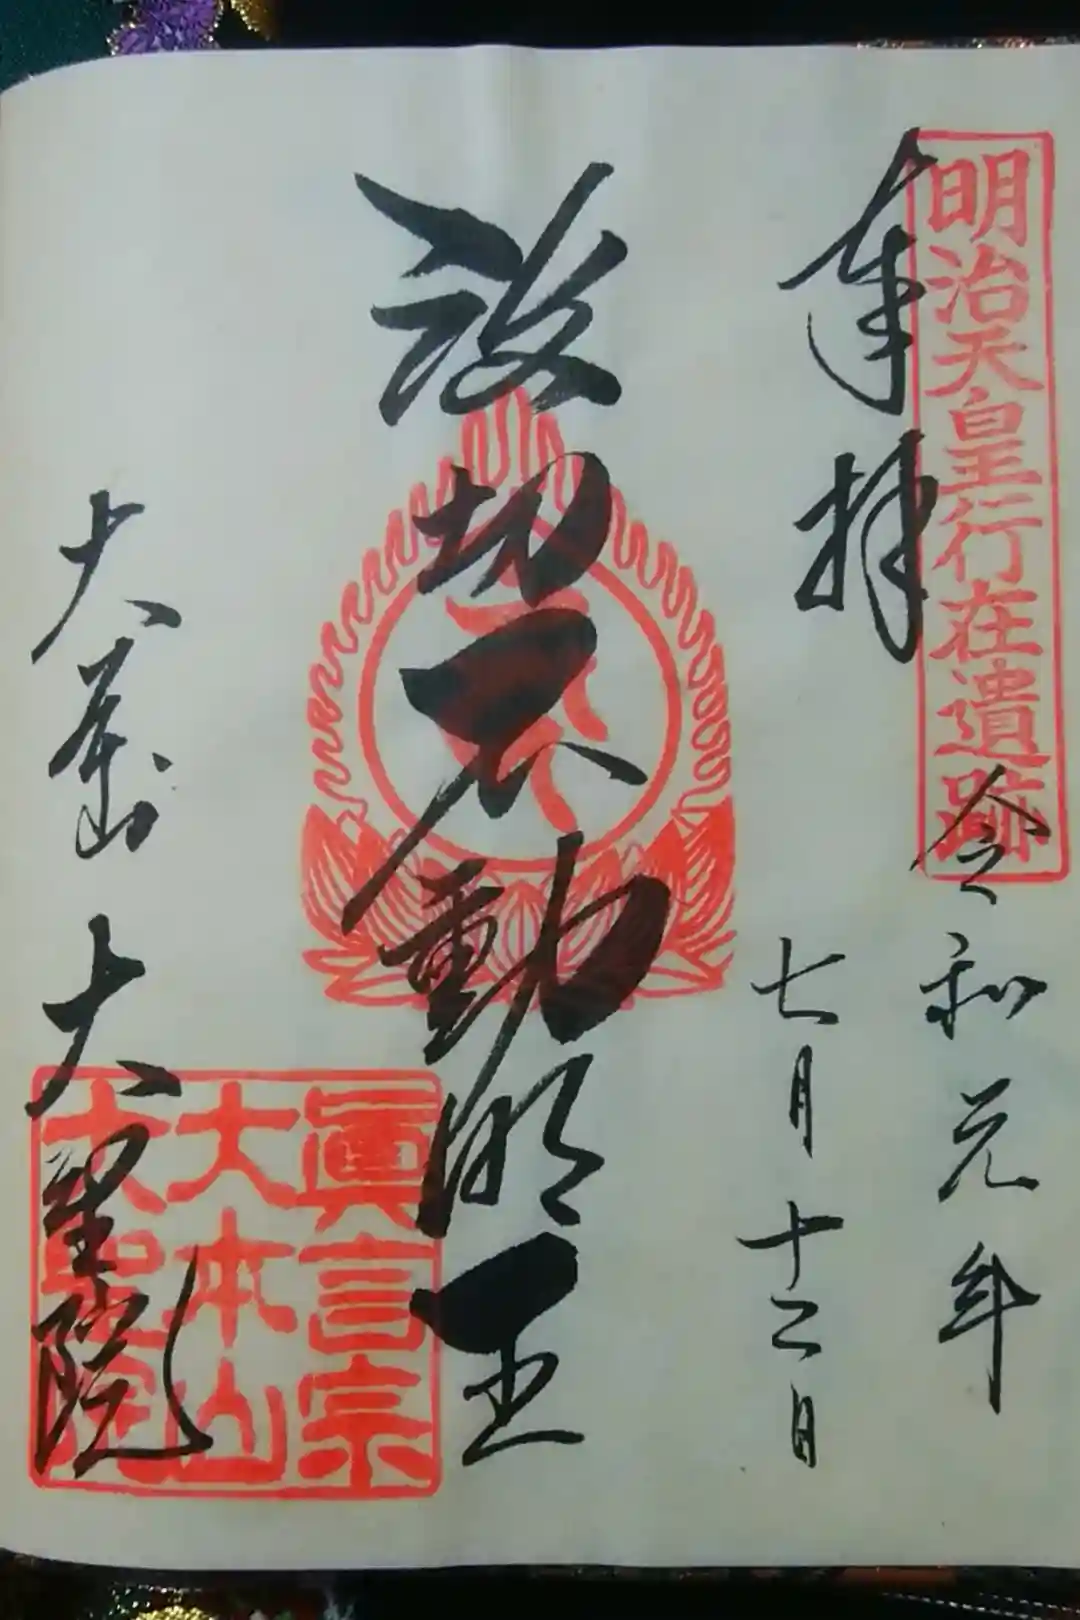 明治天皇行在遺跡
奉拝
令和元年
七月十二日
波切不動明王
大本山大聖院
眞言宗
大本山
大聖院